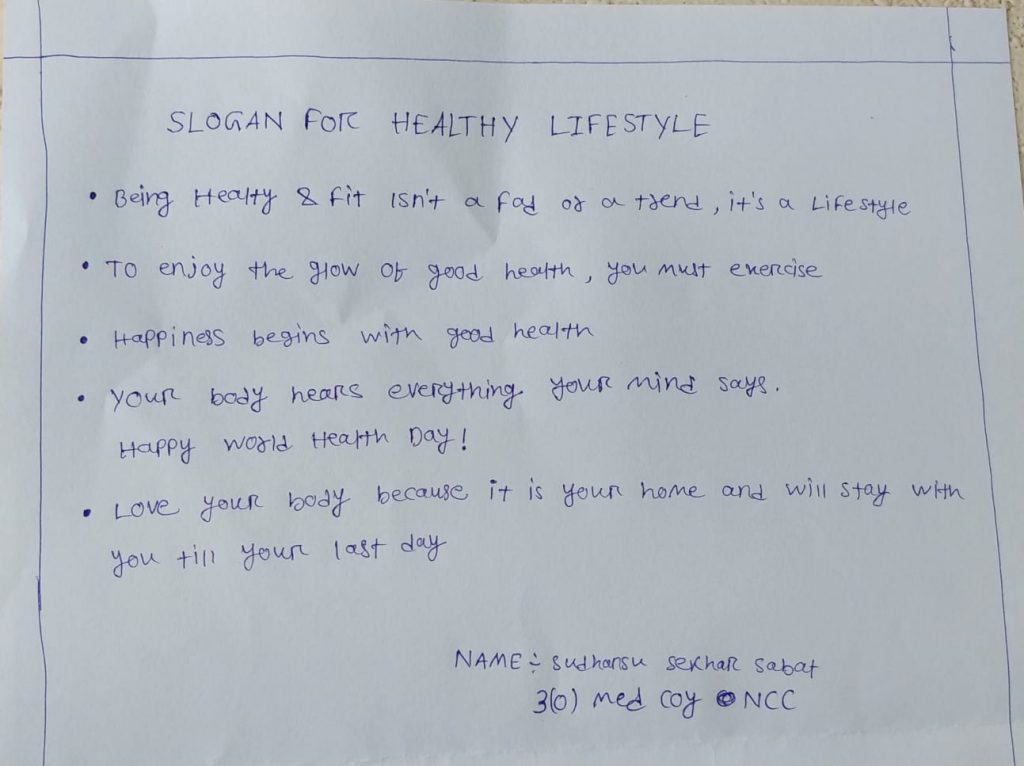 SLOGAN FOR HEALTHY LIFESTYLE
• Being Healty & fit isn't a fad or a trend, it's a Lifestyle
• To enjoy the glow of good health, you must exercise
• Happiness begins with good health
• Your body hears everything your mind says.
Happy World Health Day!
• Love your body because it is your home and will stay with
you till your last day
NAME :- Sudhansu Sekhar Sabat
3(O) Med Coy NCC